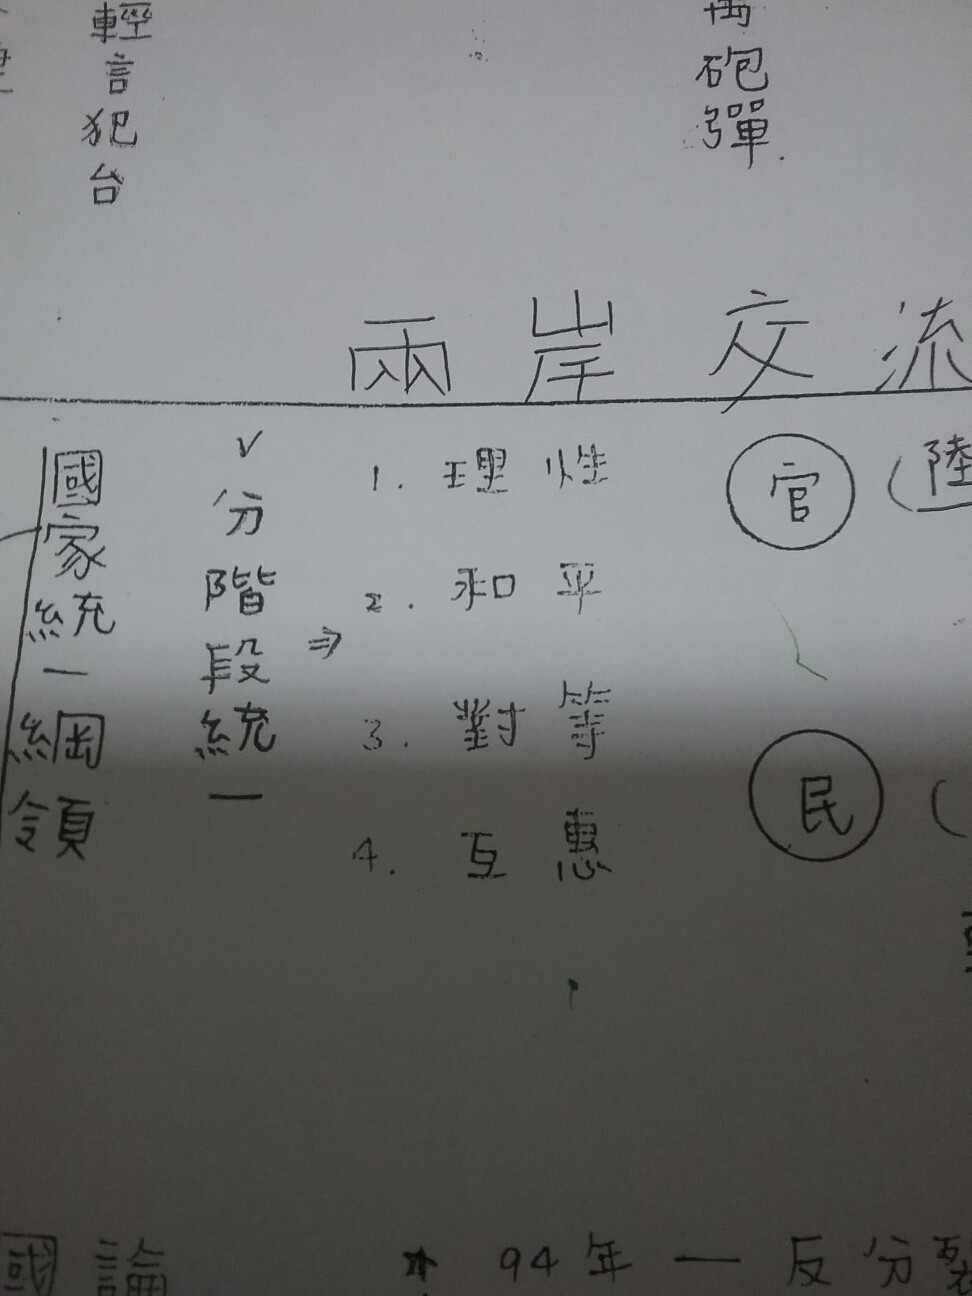 輕言犯台
砲彈.
兩岸交流
國家統一綱領
v 分階段統一 ⇒
1. 理性
2. 和平
3. 對等
4. 互惠
官 (陸
民 (
國論
★ 94年一反分裂